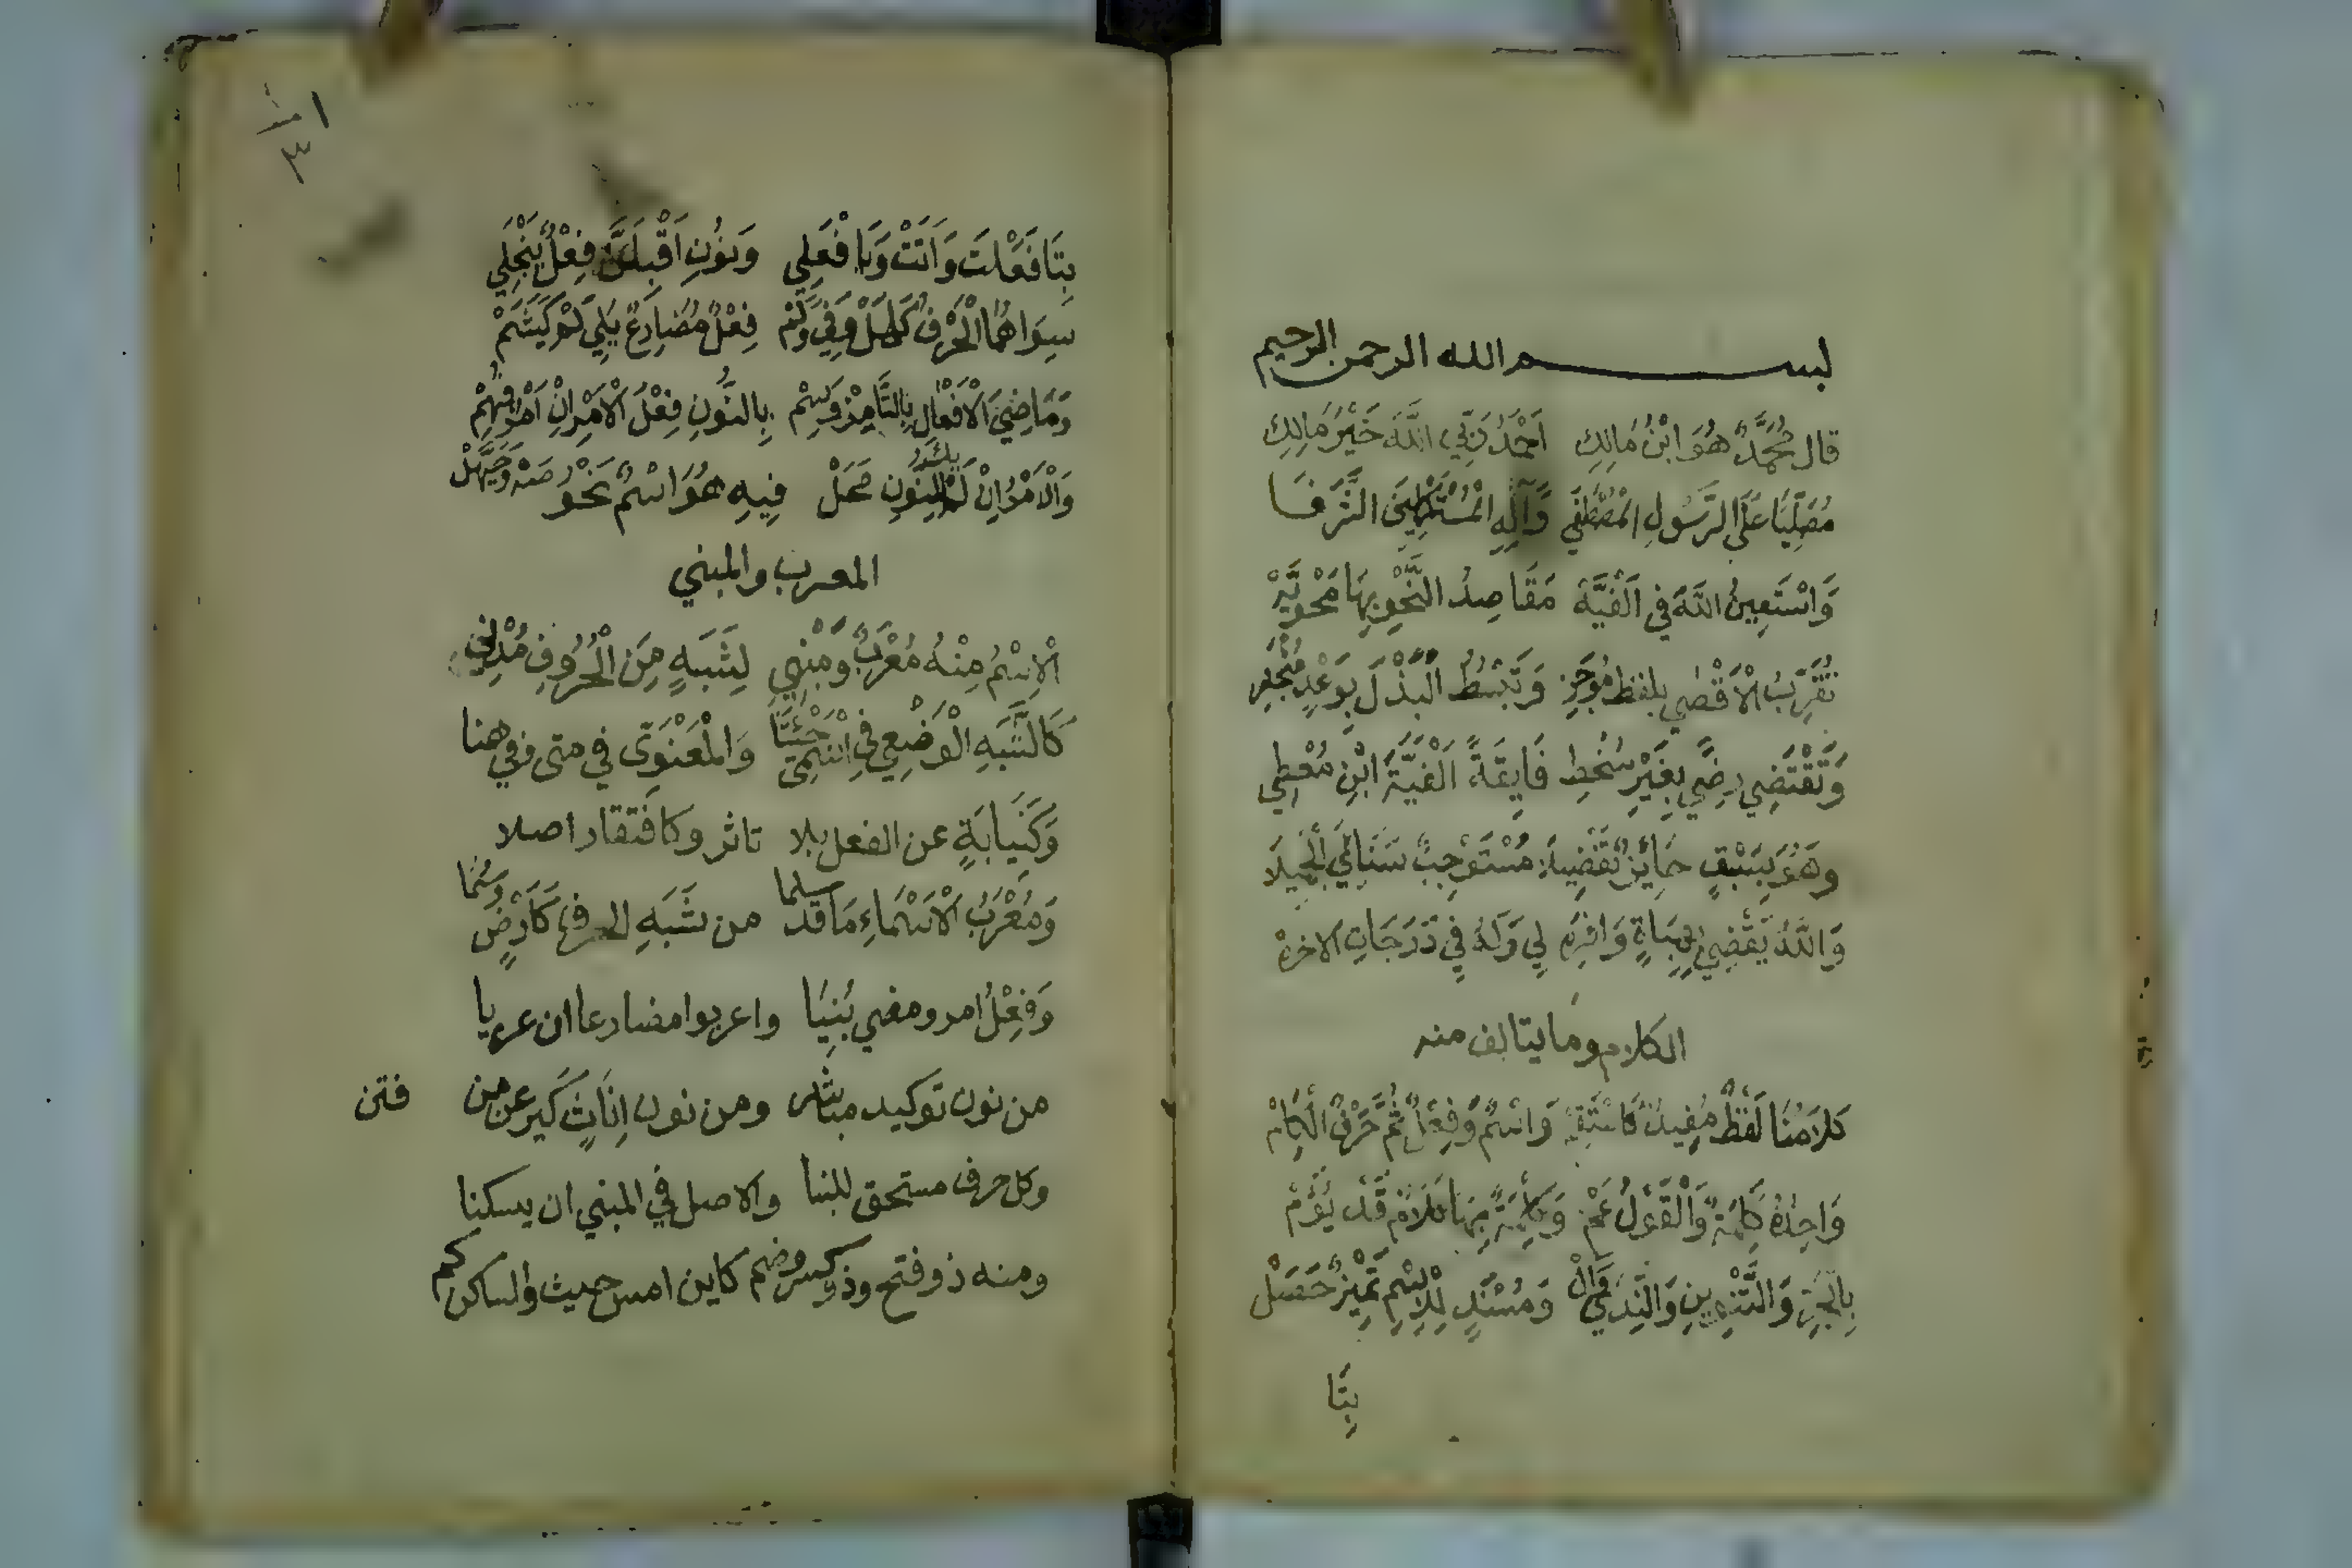 بســـــــم الله الرحمن الرحيم
قال مُحَمَّدٌ هُوَ ابْنُ مَالِكِ اَحْمَدُ رَبِّي اللَّهَ خَيْرَ مَالِكِ
مُصَلِّيًا عَلَى الرَّسُولِ الْمُصْطَفَى وَآلِهِ الْمُسْتَكْمِلِينَ الشَّرَفَا
وَاسْتَعِينُ اللَّهَ فِي اَلْفِيَّة مَقَاصِدُ النَّحْوِ بِهَا مَحْوِيَّه
تُقَرِّبُ الْاَقْصَى بلفظ مُوجَزِ وَتَبْسُطُ الْبَذْلَ بِوَعْدٍ مُنْجَزِ
وَتَقْتَضِي رِضًى بِغَيْرِ سُخْطِ فَايِقَةً اَلْفِيَّةَ ابْنِ مُعْطِي
وهُوَ بِسَبْقٍ حَايِزٌ تَفْضِيلَا مُسْتَوْجِبٌ ثَنَائِيَ الْجَمِيلَا
وَاللَّهُ يَقْضِي بِهِبَاةٍ وَافِرَه لِي وَلَهُ فِي دَرَجَاتِ الاخره
الكلام وما يتالف منه
كَلَامُنَا لَفْظٌ مُفِيدٌ كَاسْتَقِمْ وَاسْمٌ وَفِعْلٌ ثُمَّ حَرْفٌ الْكَلِمْ
وَاحِدُهُ كَلِمَةٌ وَالْقَوْلُ عَمْ وَكِلْمَةٌ بِهَا كَلَامٌ قَدْ يُؤَمْ
بِالْجَرِّ وَالتَّنْوِينِ وَالنِّدَى وَالْ وَمُسْنَدٍ لِلْاِسْمِ تَمْيِيزٌ حَصَلْ
بِتَا
٣
بِتَا فَعَلْتَ وَاَتَتْ وَيَا فْعَلِي وَنُونِ اَقْبِلَنَّ فِعْلٌ يَنْجَلِي
سِوَاهُمَا الْحَرْفُ كَهَلْ وَفِي وَلَمْ فِعْلٌ مُضَارِعٌ يَلِي لَمْ كَيَشَمْ
وَمَاضِيَ الْاَفْعَالِ بِالتَّا مِزْ وَسِمْ بِالنُّونِ فِعْلَ الْاَمْرِ اِنْ اَمْرٌ فُهِمْ
وَالْاَمْرُ اِنْ لَمْ يَكُ لِلنُّونِ مَحَلْ فِيهِ هُوَ اسْمٌ نَحْوُ صَهْ وَحَيَّهَلْ
المعرب والمبني
الْاِسْمُ مِنْهُ مُعْرَبٌ ومَبْنِي لِشَبَهٍ مِنَ الْحُرُوفِ مُدْنِي
كَالشَّبَهِ الْوَضْعِي فِي اسْمَيْ جِئْتَنَا وَالْمَعْنَوِي في متى وفي هنا
وَكَنِيَابَةٍ عن الفعل بلا تاثر وكافتقار اصلا
وَمُعْرَبُ الْاَسْمَاءِ مَا قَدْ سلما من شَبَهِ الحرف كَاَرْضٍ وَسُمَا
وَفِعْلُ امر ومضي بُنِيَا واعربوا مضارعا ان عريا
من نون توكيد مباشر ومن نون اِنَاثٍ كَيَرعن من فتن
وكل حرف مستحق للبنا والاصل في المبني ان يسكنا
ومنه ذو فتح وذو كسر وضم كاين امس حيث والساكن كم